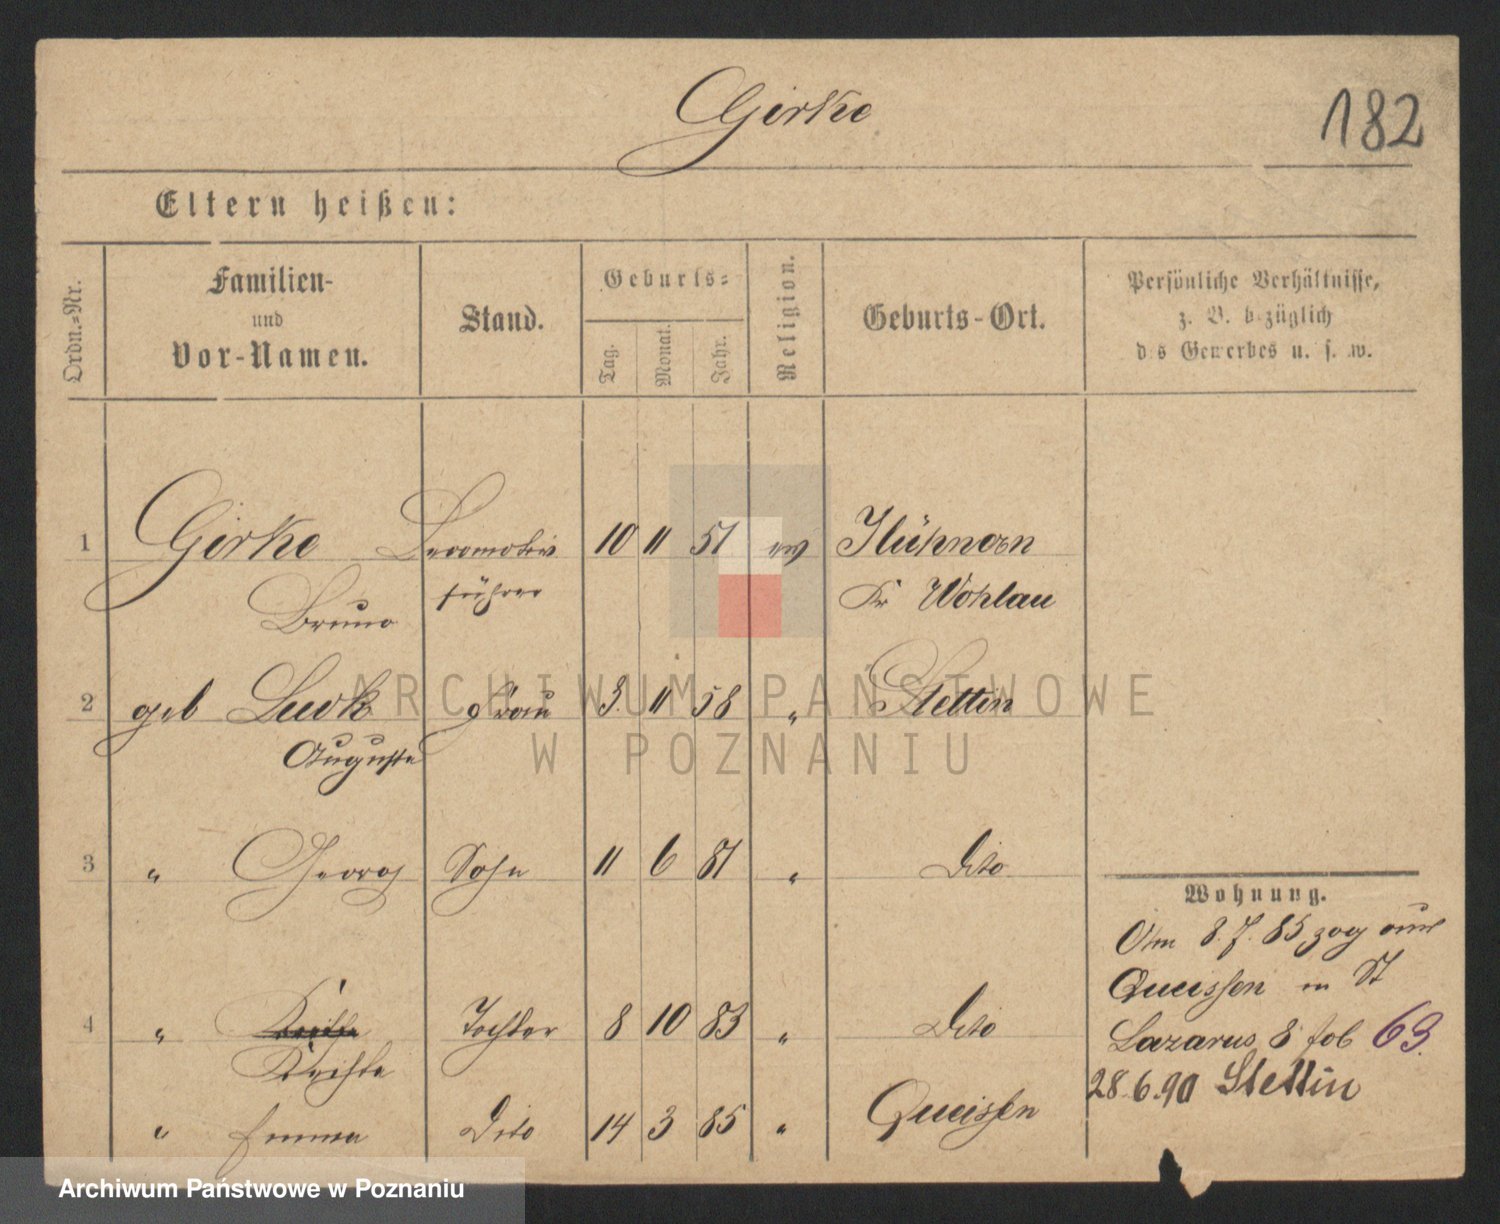 Girke
182
Eltern heißen:
Ordn.-Nr.
Familien-
und
Vor-Namen.
Stand.
Geburts-
Tag.
Monat.
Jahr.
Religion.
Geburts-Ort.
Persönliche Verhältnisse,
z. B. bezüglich
des Gewerbes u. s. w.
1 Girke Locomotiv 10 11 51 ev
Bruno führer Kr Wohlau
2 geb Frau 3. 11 58 " Stettin
Auguste
3 " Georg Sohn 11 6 81 " Dito
Wohnung.
Am 8.7.85 zog aus
Queissen in St
Lazarus 8 fol 63.
4 " Tochter 8 10 83 " Dito
28.6.90 Stettin
" Emma Dito 14 3 85 " Queissen
ARCHIWUM PAŃSTWOWE
W POZNANIU
Archiwum Państwowe w Poznaniu